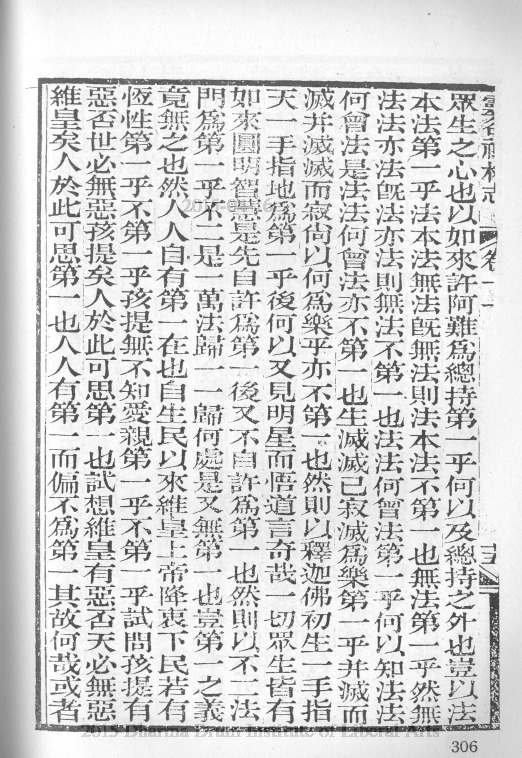 雲 志 卷十一
眾生之心也以如來許阿難爲總持第一乎何以及總持之外也豈以法
本法第一乎法本法無法旣無法則法本法不第一也無法第一乎然無
法法亦法旣法亦法則無法不第一也法法何曾法第一乎何以知法法
何曾法是法法何曾法亦不第一也生滅滅已寂滅爲樂第一乎并滅而
滅并滅滅而寂尙以何爲樂乎亦不第一也然則以釋迦佛初生一手指
天一手指地爲第一乎後何以又見明星而悟道言奇哉一切眾生皆有
如來圓明智慧是先自許爲第一後又不自許爲第一也然則以不二法
門爲第一乎不二是一萬法歸一一歸何處是又無第一也豈第一之義
竟無之也然人人自有第一在也自生民以來維皇上帝降衷下民若有
恆性第一乎不第一乎孩提無不知愛親第一乎不第一乎試問孩提有
惡否世必無惡孩提矣人於此可思第一也試想維皇有惡否天必無惡
維皇矣人於此可思第一也人人有第一而偏不爲第一其故何哉或者
2015 Dharma Drum Institute of Liberal Arts
306